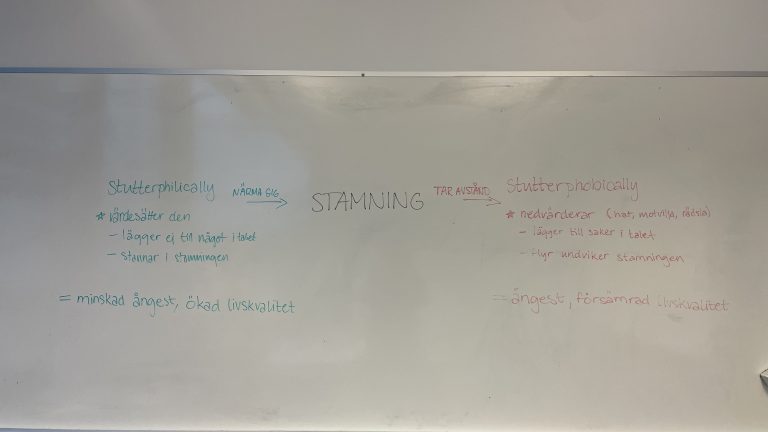 Stutterphilically
NÄRMA SIG
STAMNING
TAR AVSTÅND
Stutterphobically
* värdesätter den
- lägger ej till något i talet
- stannar i stamningen
= minskad ångest, ökad livskvalitet
* nedvärderar (hat, motvilja, rädsla)
- lägger till saker i talet
- flyr undviker stamningen
= ångest, försämrad livskvalitet